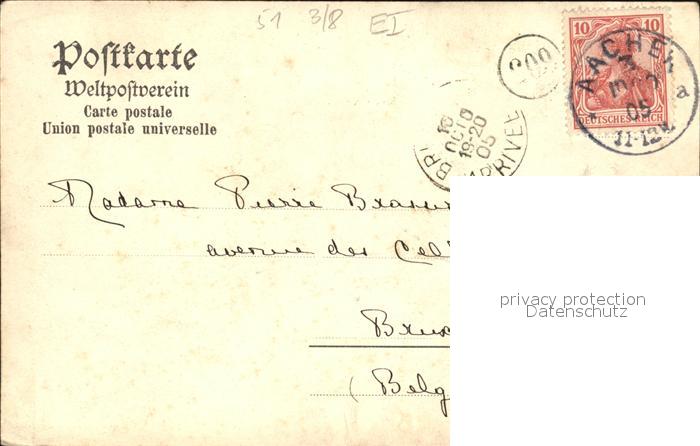 51 3/8 EI
Postkarte
Weltpostverein
Carte postale
Union postale universelle
10 10
DEUTSCHES REICH
AACHEN
05
11-12
a
009
10
OCTO
19-20
05
ARRIVEE
Madame Pierre
avenue des Cel
Brux
(Belg
privacy protection
Datenschutz